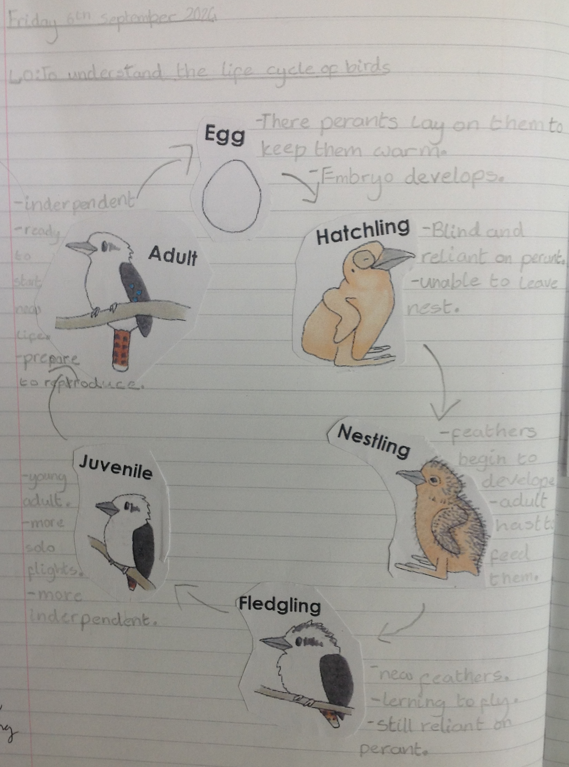 Friday 6th september 2024
LO:To understand the life cycle of birds
Egg
-There perants lay on them to
keep them warm.
-Embryo develops.
Hatchling
-Blind and
reliant on perant.
-unable to leave
nest.
Nestling
-feathers
begin to
develope
-adult
hast to
feed
them.
Fledgling
-new feathers.
-lerning to fly.
-still reliant on
perant.
Juvenile
-young
adult.
-more
solo
flights.
-more
inderpendent.
Adult
-inderpendent
-ready
to
new
-prepare
to reptroduce.